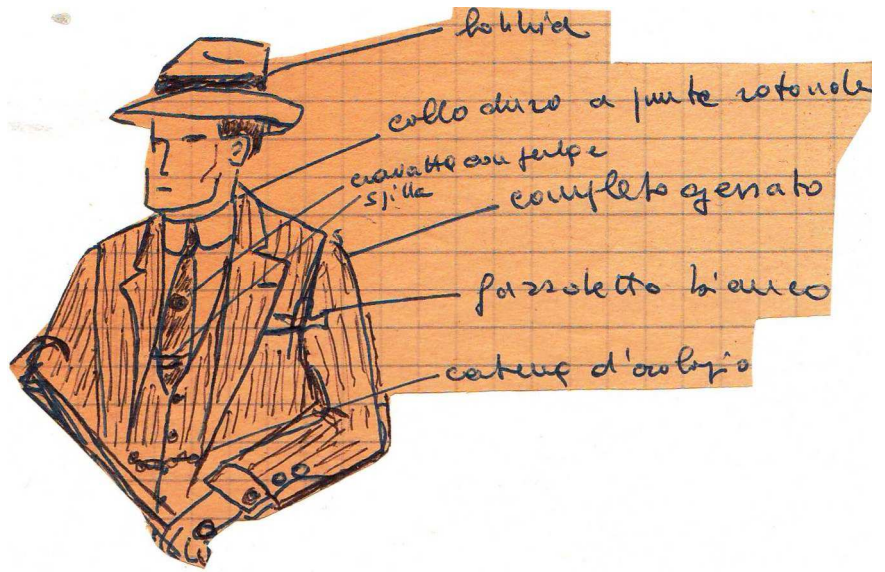 lobbia
collo duro a punte rotonde
cravatta con perla e
spilla
completo gessato
fazzoletto bianco
catena d'orologio